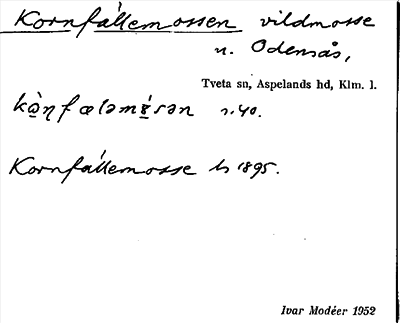 Kornfällemossen vildmosse
n. Odensås,
Tveta sn, Aspelands hd, Klm. l.
Kornfällemosse 1895.
Ivar Modéer 1952